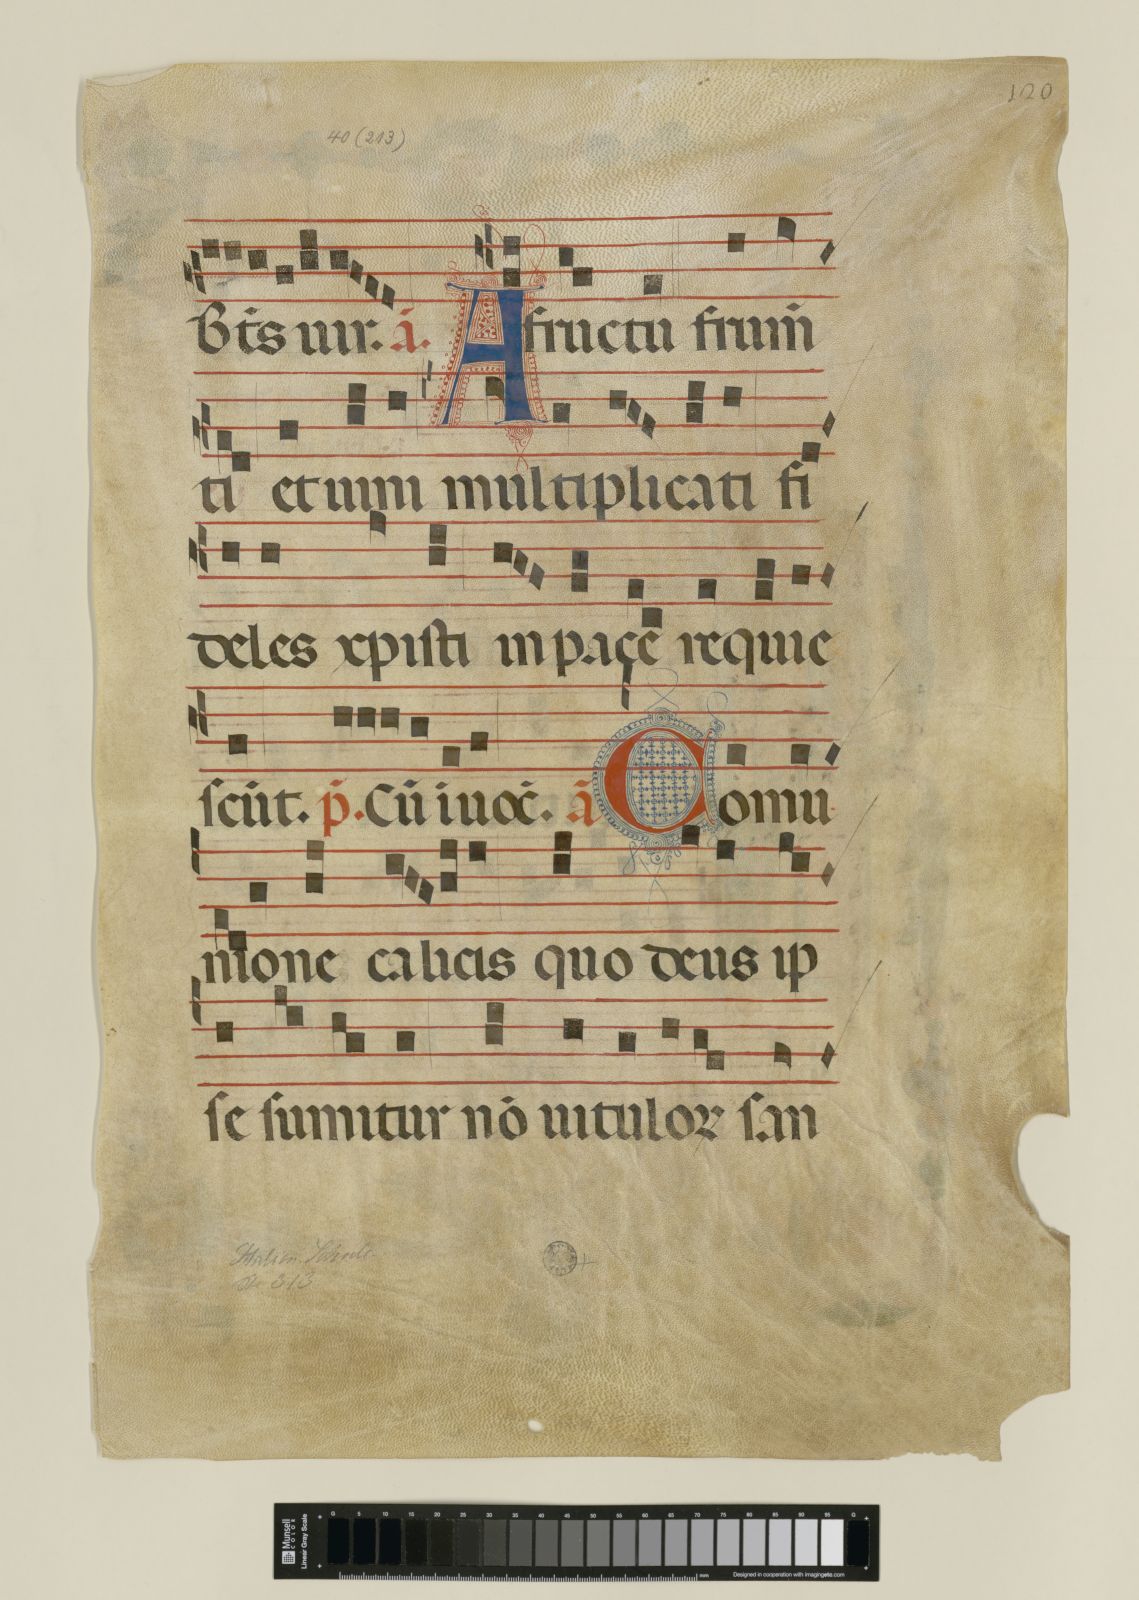 120
40 (213)
Bt̄s uir. ā. A fructu frum̄
ti et uini multiplicati fi
deles xpisti in pace requie
scūt. p̄. Cū iuoc̄. ā Comu
nione calicis quo deus ip
se sumitur nō uituloꝝ san
Munsell
COLOR
Linear Gray Scale
0 5 10 15 20 25 30 35 40 45 50 55 60 65 70 75 80 85 90 95
mm
Designed in cooperation with imagingetc.com